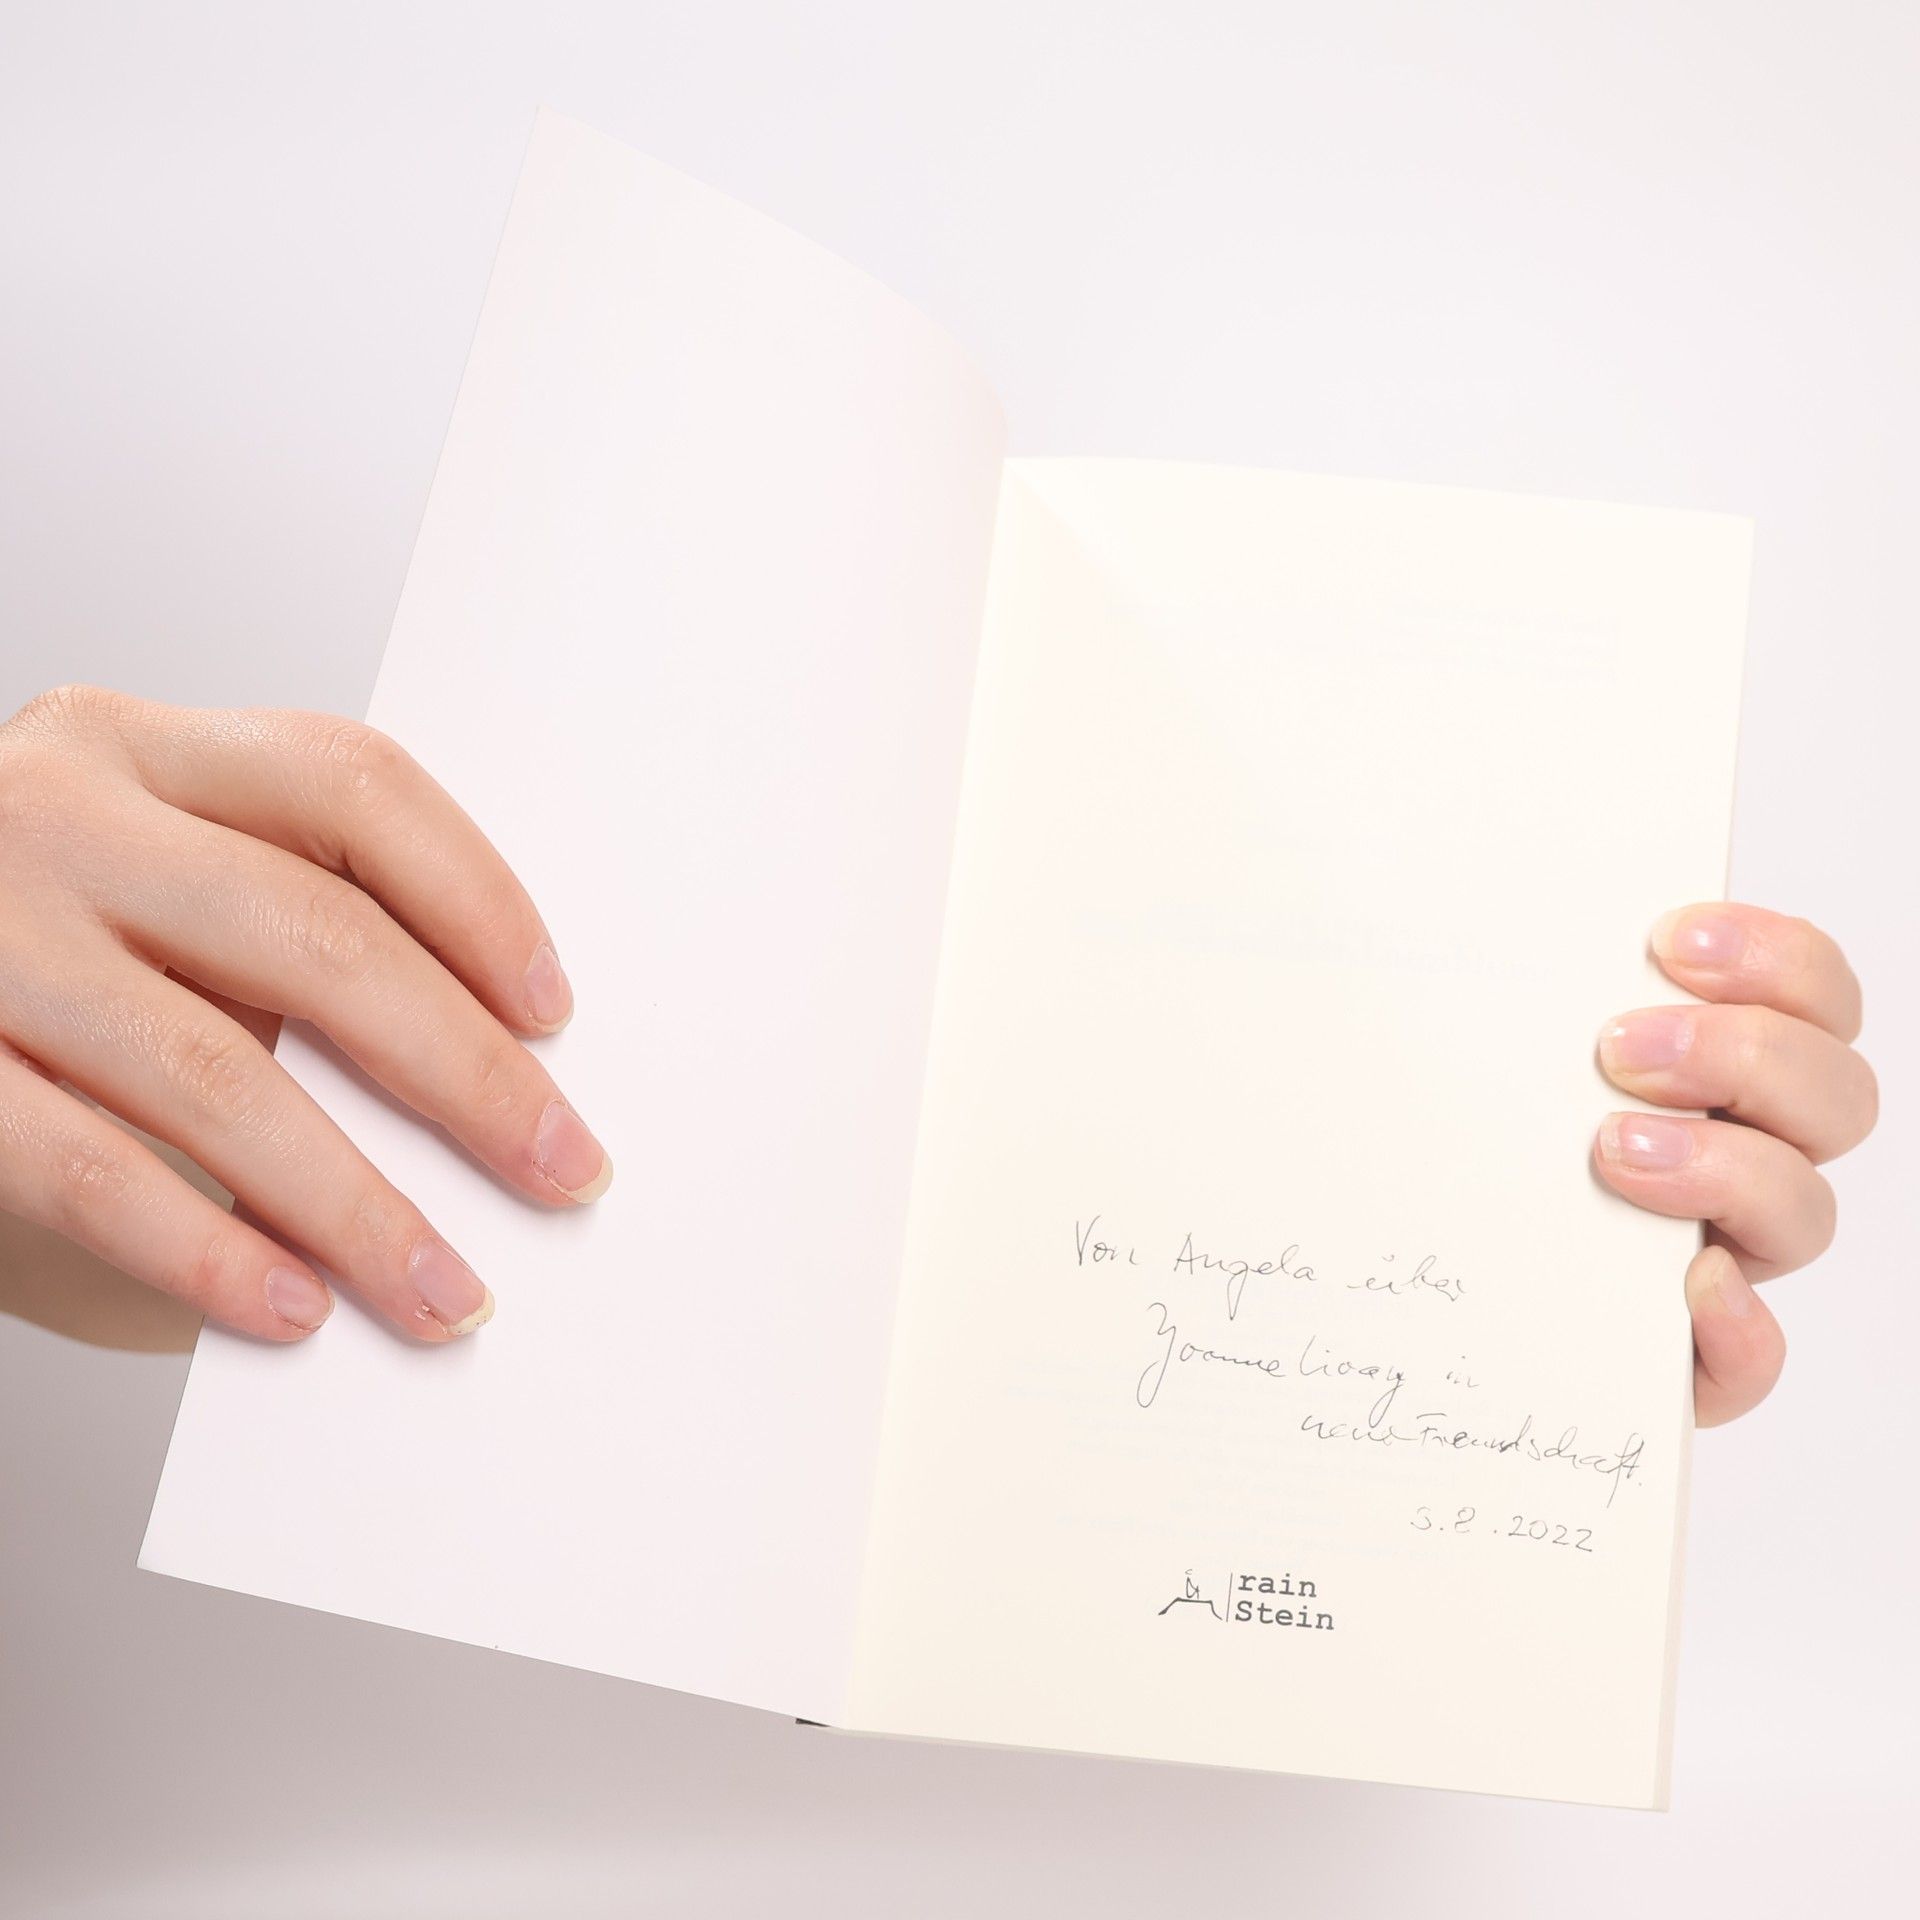 Von Angela über
Yvonne Livay in
neuer Freundschaft.
3.8.2022
rain
Stein